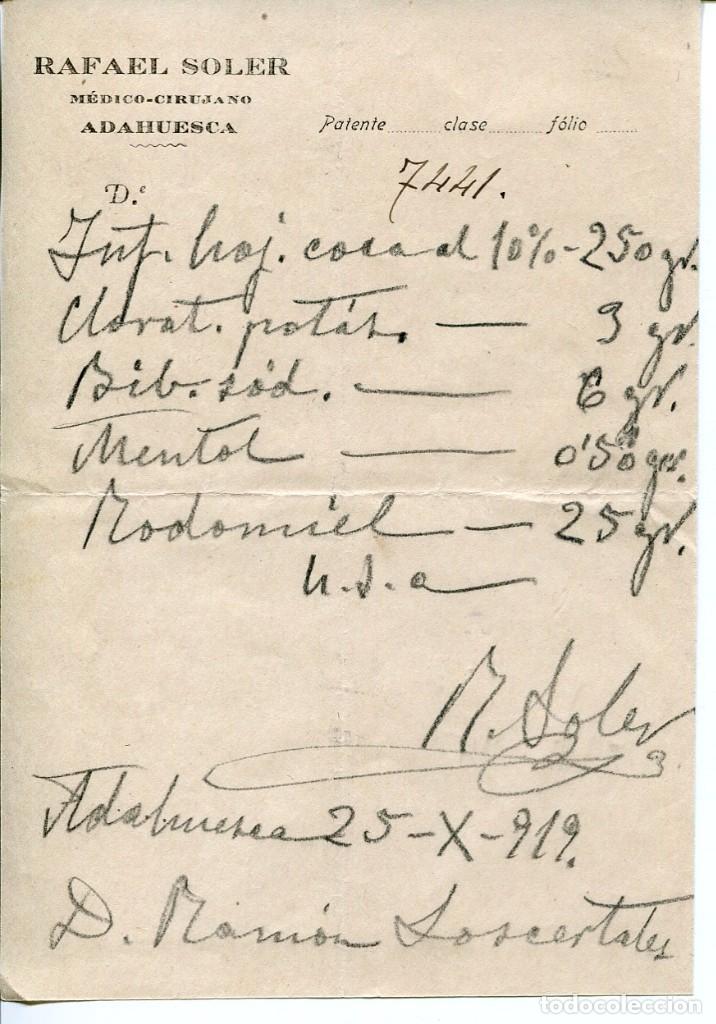 RAFAEL SOLER
MÉDICO-CIRUJANO
ADAHUESCA
Patente ........ clase ........ fólio ........
7441.
D.e
Inf. hoj. coca al 10%-250 gr.
Clorat. potás. — 3 gr.
Bib. sód. — 6 gr.
Mentol — 0'50 gr.
Rodomiel — 25 gr.
h.s.a —
R. Soler
Adahuesca 25-X-919.
D. Ramón Loscertales
todocoleccion